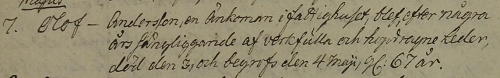 7. Olof – Andersson, en Änkeman i fattighuset, blef, efter några
års sängliggande af verkfulla och hopdragne Leder,
död den 3, och begrofs den 4 maji, 67 år.